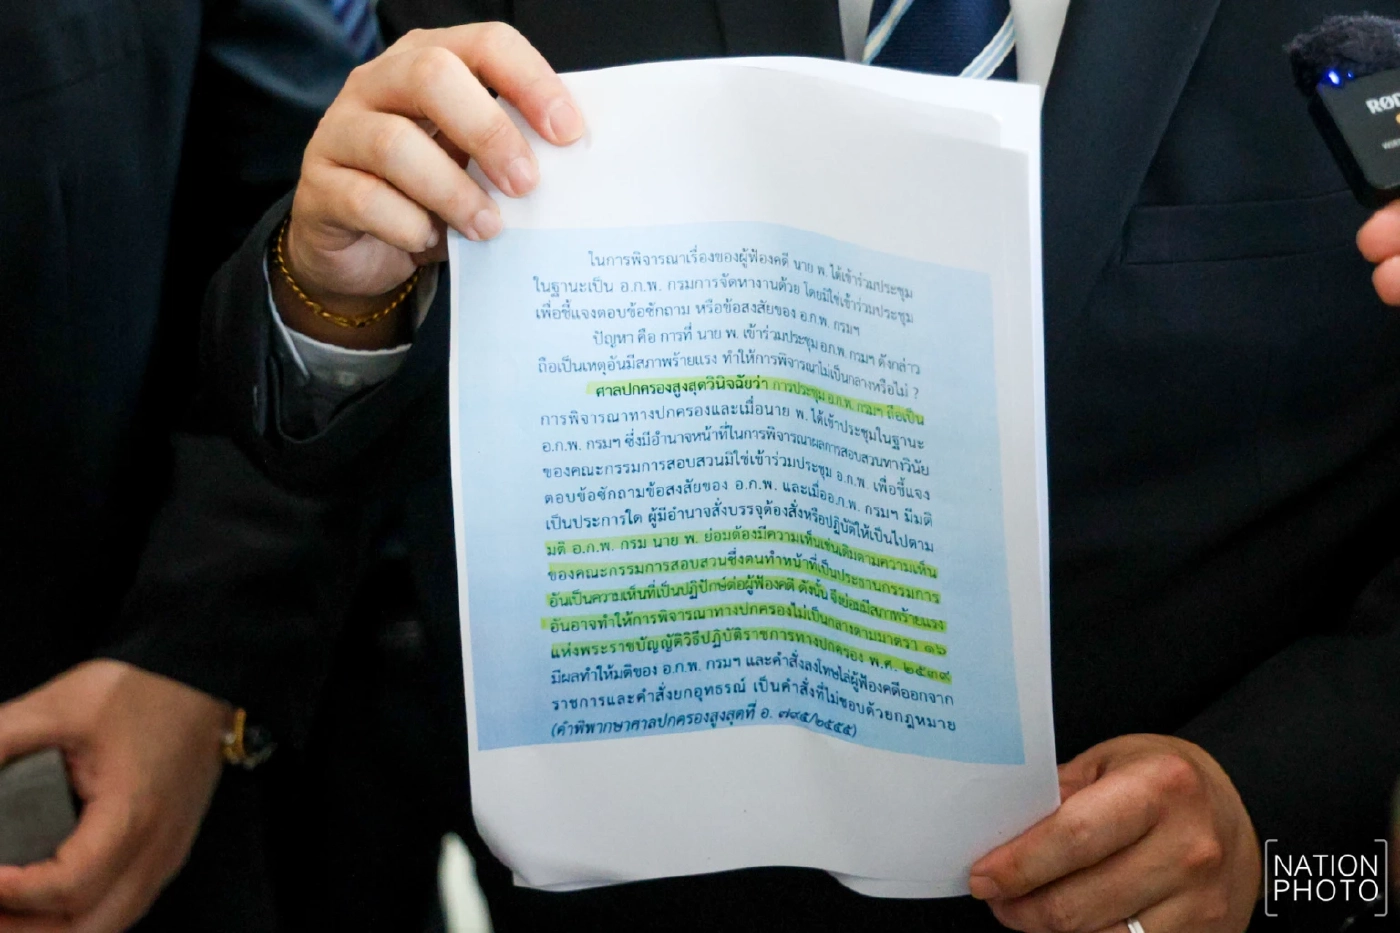 ในการพิจารณาเรื่องของผู้ฟ้องคดี นาย พ. ได้เข้าร่วมประชุม
ในฐานะเป็น อ.ก.พ. กรมการจัดหางานด้วย โดยมิใช่เข้าร่วมประชุม
เพื่อชี้แจงตอบข้อซักถาม หรือข้อสงสัยของ อ.ก.พ. กรมฯ
ปัญหา คือ การที่ นาย พ. เข้าร่วมประชุม อ.ก.พ. กรมฯ ดังกล่าว
ถือเป็นเหตุอันมีสภาพร้ายแรง ทำให้การพิจารณาไม่เป็นกลางหรือไม่ ?
ศาลปกครองสูงสุดวินิจฉัยว่า การประชุม อ.ก.พ. กรมฯ ถือเป็น
การพิจารณาทางปกครองและเมื่อนาย พ. ได้เข้าประชุมในฐานะ
อ.ก.พ. กรมฯ ซึ่งมีอำนาจหน้าที่ในการพิจารณาผลการสอบสวนทางวินัย
ของคณะกรรมการสอบสวนมิใช่เข้าร่วมประชุม อ.ก.พ. เพื่อชี้แจง
ตอบข้อซักถามข้อสงสัยของ อ.ก.พ. และเมื่ออ.ก.พ. กรมฯ มีมติ
เป็นประการใด ผู้มีอำนาจสั่งบรรจุต้องสั่งหรือปฏิบัติให้เป็นไปตาม
มติ อ.ก.พ. กรม นาย พ. ย่อมต้องมีความเห็นเช่นเดิมตามความเห็น
ของคณะกรรมการสอบสวนซึ่งตนทำหน้าที่เป็นประธานกรรมการ
อันเป็นความเห็นที่เป็นปฏิปักษ์ต่อผู้ฟ้องคดี ดังนั้น จึงย่อมมีสภาพร้ายแรง
อันอาจทำให้การพิจารณาทางปกครองไม่เป็นกลางตามมาตรา ๑๖
แห่งพระราชบัญญัติวิธีปฏิบัติราชการทางปกครอง พ.ศ. ๒๕๓๙
มีผลทำให้มติของ อ.ก.พ. กรมฯ และคำสั่งลงโทษไล่ผู้ฟ้องคดีออกจาก
ราชการและคำสั่งยกอุทธรณ์ เป็นคำสั่งที่ไม่ชอบด้วยกฎหมาย
(คำพิพากษาศาลปกครองสูงสุดที่ อ. ๗๙๕/๒๕๕๕)
NATION
PHOTO